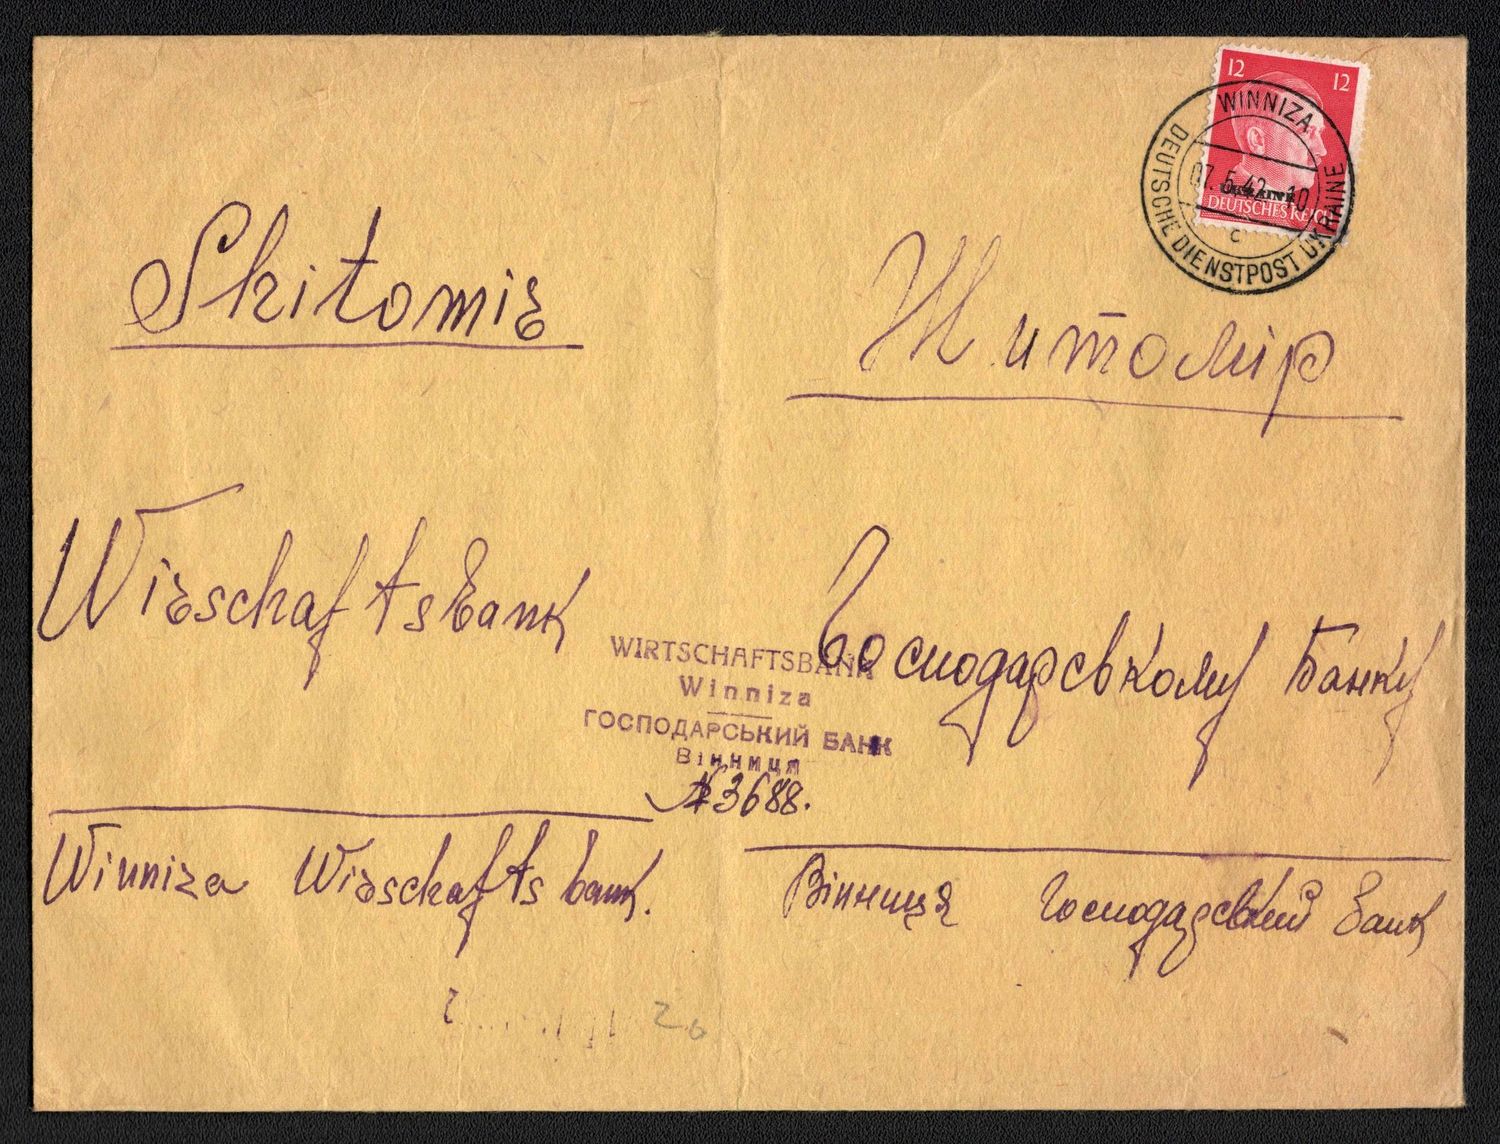 12 12
UKRAINE
DEUTSCHES REICH
WINNIZA
07.5.42.-10
c
DEUTSCHE DIENSTPOST UKRAINE
Shitomir
Житомір
Wirschaftsbank
Господарському Банку
WIRTSCHAFTSBANK
Winniza
ГОСПОДАРСЬКИЙ БАНК
Вінниця
№3688.
Winniza Wirschafts bank.
Вінниця Господарський Банк
26